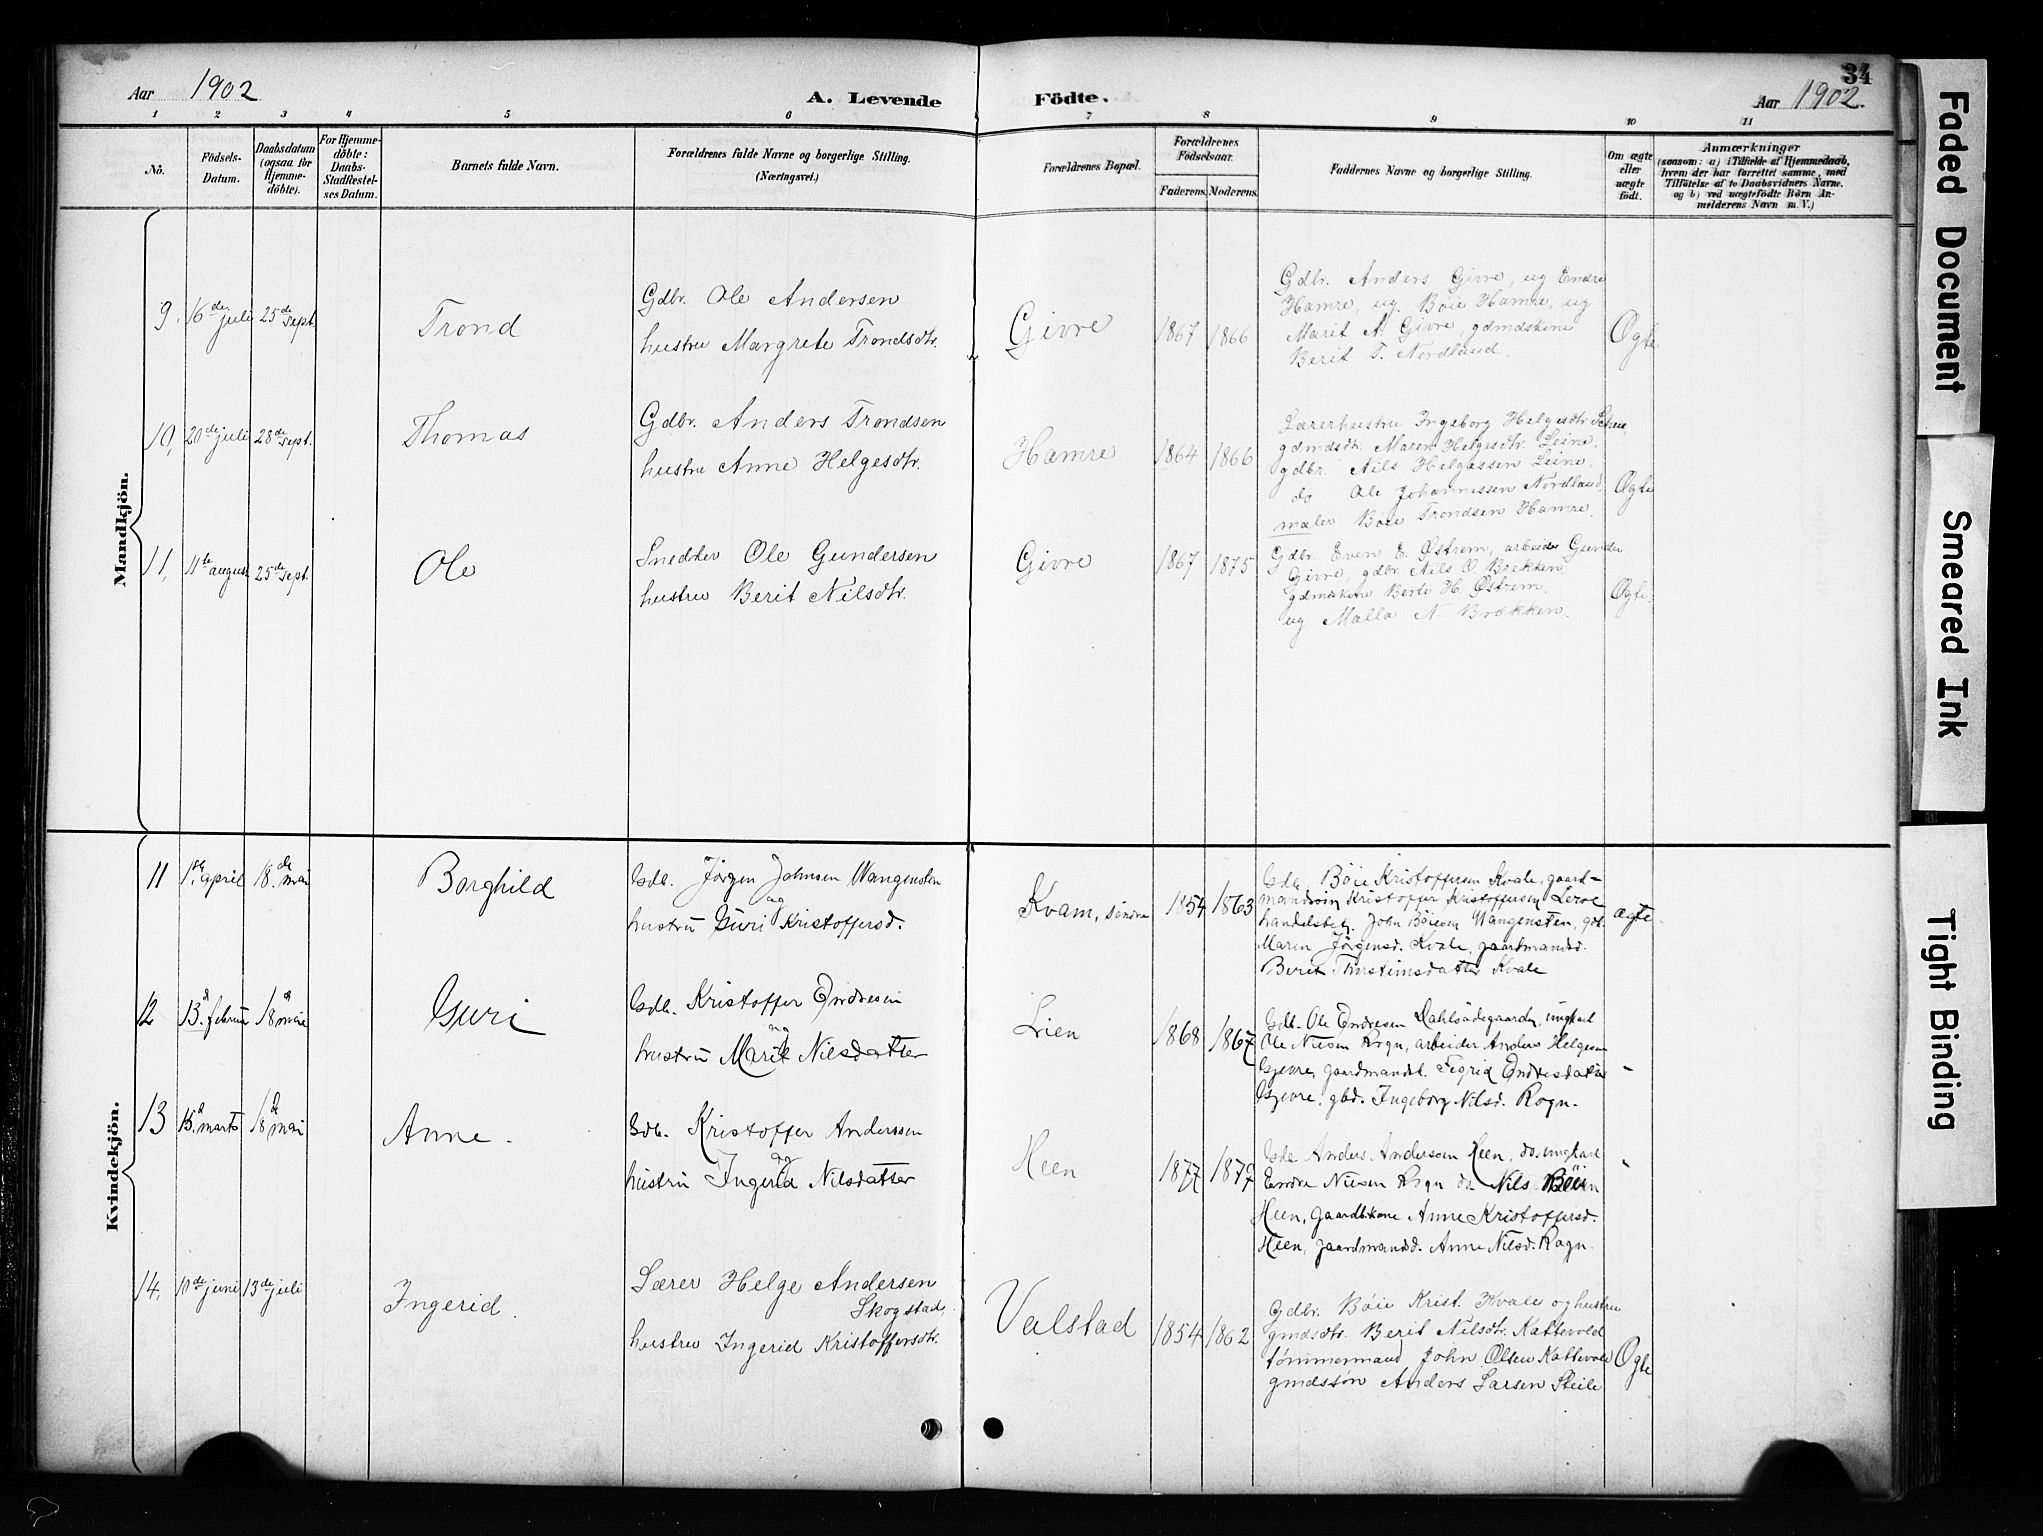 34
Aar 1902
A. Levende Födte.
Aar 1902.
1 2 3 4 5 6 7 8 9 10 11
No.
Födsels-
Datum.
Daabsdatum
(ogsaa for
Hjemme-
döbte).
For Hjemme-
döbte:
Daabs-
Stadfæstel-
ses Datum.
Barnets fulde Navn.
Forældrenes fulde Navne og borgerlige Stilling.
(Næringsvei.)
Forældrenes Bopæl.
Forældrenes
Födselsaar.
Faderens. Moderens.
Faddernes Navne og borgerlige Stilling.
Om ægte
eller
uægte
födt.
Anmærkninger
(saasom: a) i Tilfælde af Hjemmedaab,
hvem der har forrettet samme, med
Tilföielse af to Daabsvidners Navne,
og b) ved uægtefödte Börn An-
melderens Navn m. V.)
Mandkjön.
9. 16de juli 25de sept. Trond
Gdbr. Ole Andersen
hustru Margrete Trondsdtr.
Givre 1867 1866
Gdbr. Anders Givre, og Endre
Hamre, og Bøie Hamre, og
Marit A. Givre, gdmdskone
Berit T. Nordland.
Ægte
10, 20de juli 28de sept. Thomas
Gdbr. Anders Trondsen
hustru Anne Helgesdtr.
Hamre 1864 1866
Lærerhustru Ingeborg Helgesdtr
gdmdsdtr. Maren Helgesdtr. Leine,
gdbr. Nils Helgessen Leine,
do Ole Johannessen Nordland,
maler Bøie Trondsen Hamre.
Ægte
11, 11te august 25de sept. Ole
Snedker Ole Gundersen
hustru Berit Nilsdtr.
Givre 1867 1875
Gdbr. Even E. Østrem, arbeider Gunder
Givre, gdbr. Nils O. Brekken,
gdmskone Berte H. Østrem,
og Malla N. Brækken.
Ægte.
Kvindekjön.
11 1ste april 18de mai Borghild
Gdb. Jørgen Johnsen Wangensten
og
hustru Guri Kristoffersd.
Kvam, søndre 1854 1863
Gdb. Bøie Kristoffersen Kvale, gaard-
mandssøn Kristoffer Kristoffersen
handelsbetj. John Bøiesen Wangensten,
Maren Jørgensd. Kvale, gaardmandsd.
Berit Thosteinsdatter Kvale
ægte
12 13d februar 18d mai Guri
Gdb. Kristoffer Endresen
og
hustru Marit Nilsdatter
Lien 1868 1867
Gdb. Ole Endresen Dahlsødegaarden, ungkarl
Ole Nilsen Rogn, arbeider Anders Helgesen
Gjevre, gaardmandsk. Sigrid Endresdatter
Gjevre, gbd. Ingeborg Nilsd. Rogn.
"
13 15d marts 18d mai Anne.
Gdb. Kristoffer Anderssen
og
hustru Ingerid Nilsdatter
Heen 1877 1879
Gdb. Anders Anderssen Heen, do. ungkarl
Endre Nilsen Rogn do Nils Bøien
Heen, gaardbkone Anne Kristoffersd.
Heen, gaardmandsd. Anne Nilsd. Rogn.
"
14, 10de juni 13de juli Ingerid.
Lærer Helge Andersen
Skogstad,
hustru Ingerid Kristoffersdtr.
Valstad 1854 1862
Gdbr. Bøie Krist. Kvale og hustru
gmdsdtr. Berit Nilsdtr. Kattevold
tømmermand John Olsen Kattevold
gmdssøn Anders Larsen Steile
Ægte
Faded Document
Smeared Ink
Tight Binding